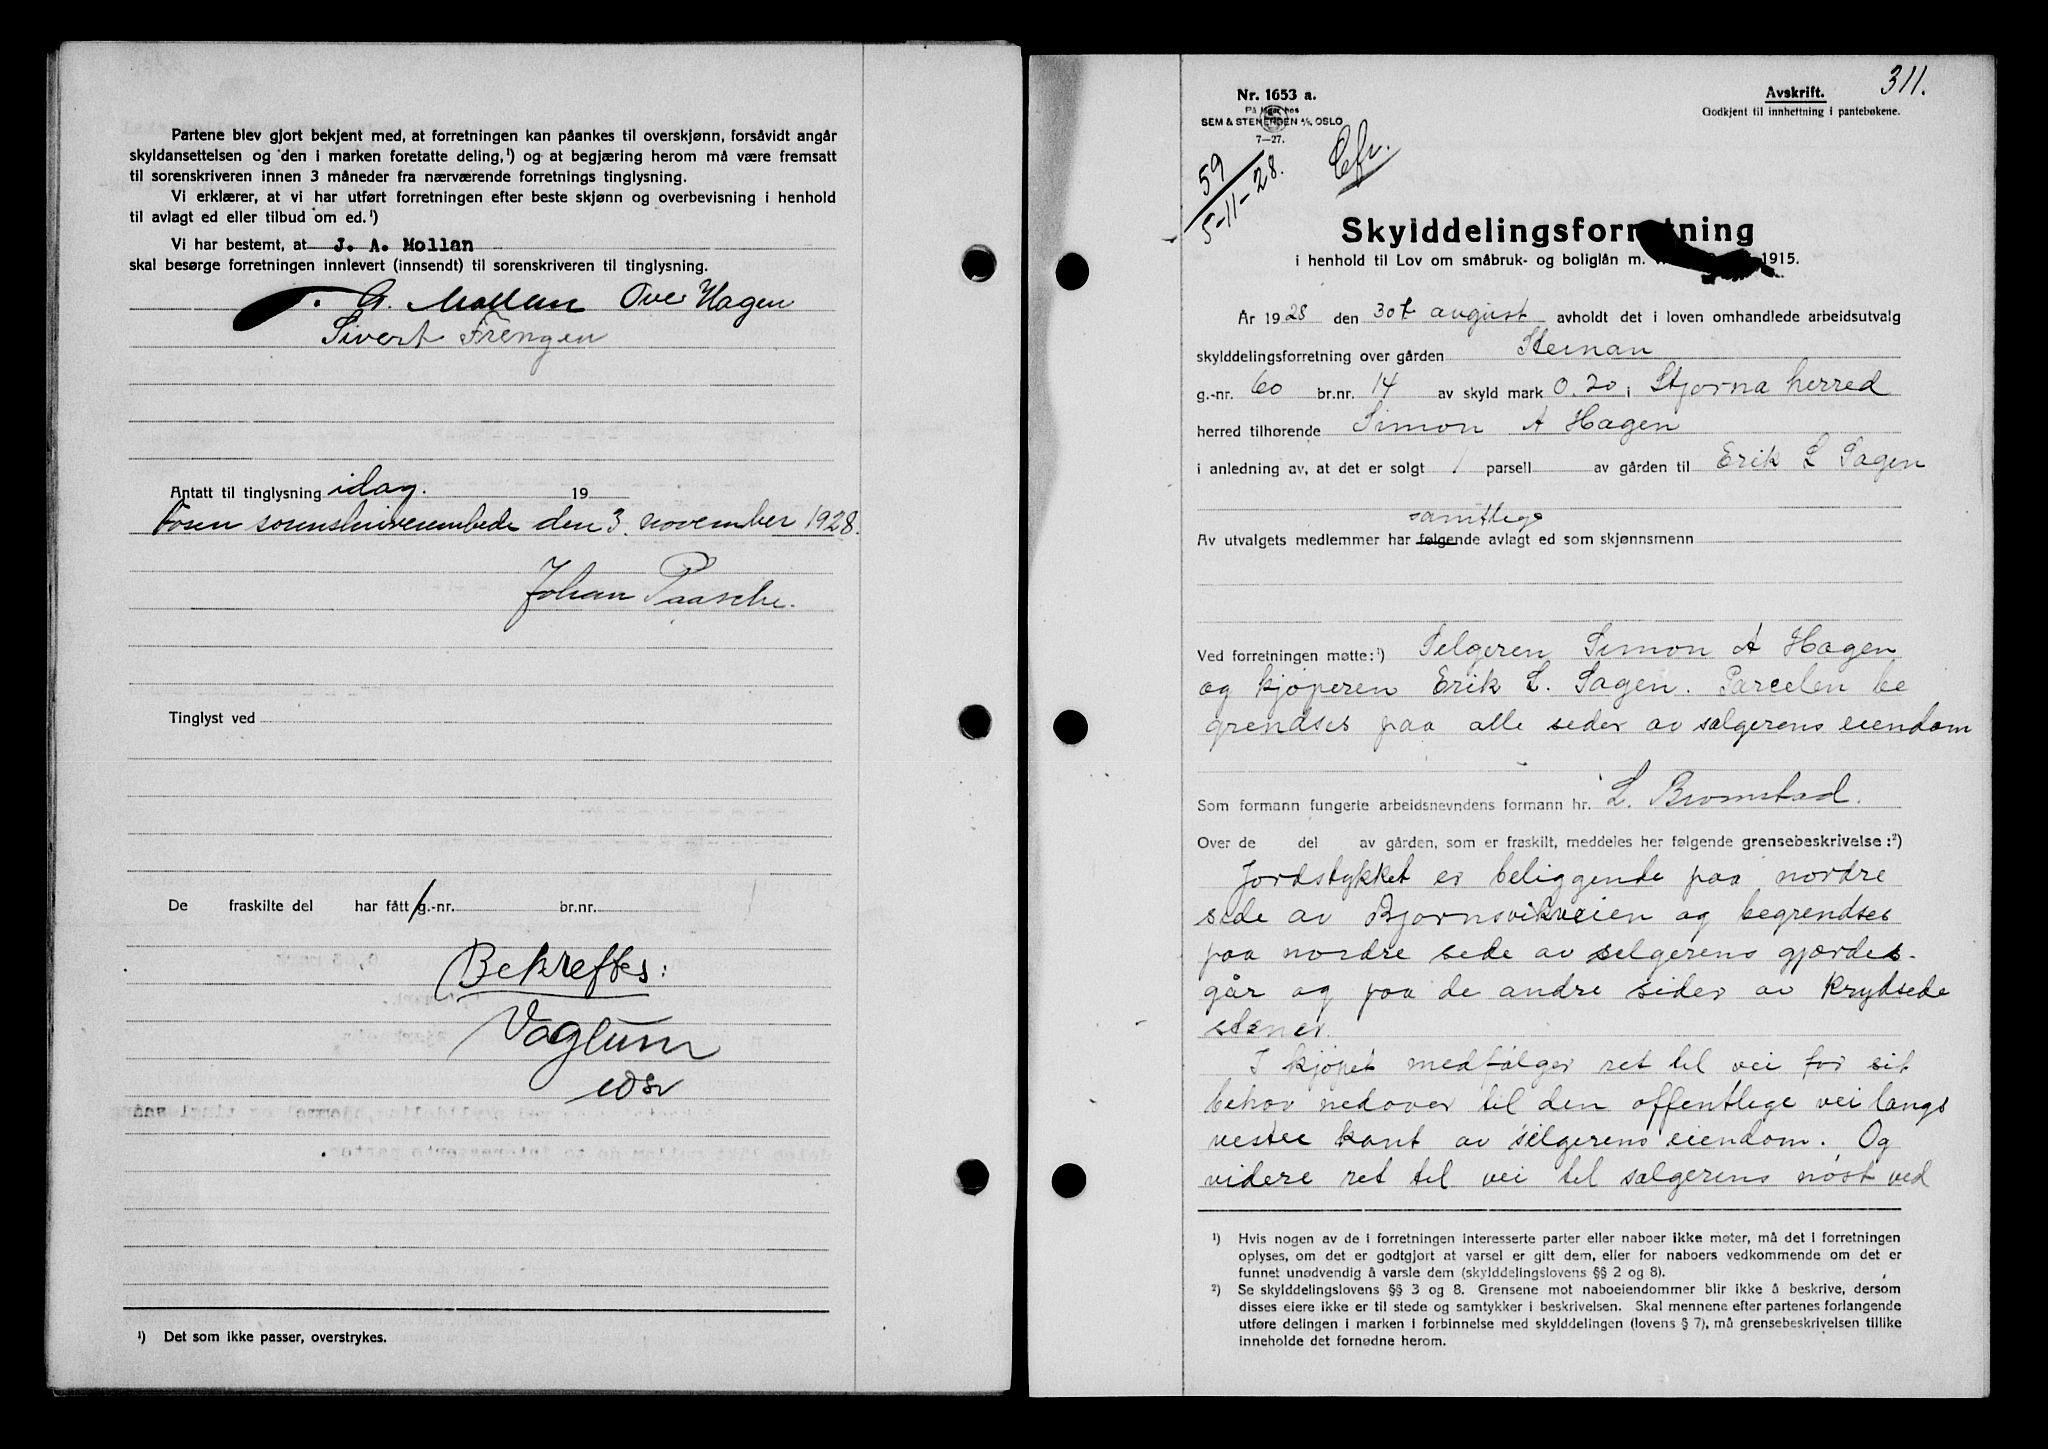 Partene blev gjort bekjent med, at forretningen kan påankes til overskjønn, forsåvidt angår
skyldansettelsen og den i marken foretatte deling,¹) og at begjæring herom må være fremsatt
til sorenskriveren innen 3 måneder fra nærværende forretnings tinglysning.
Vi erklærer, at vi har utført forretningen efter beste skjønn og overbevisning i henhold
til avlagt ed eller tilbud om ed.¹)
Vi har bestemt, at J. A. Mollan
skal besørge forretningen innlevert (innsendt) til sorenskriveren til tinglysning.
Mollan Ove Hagen
Sivert Frengen
Antatt til tinglysning idag. 19
Fosen sorenskriverembede den 3. november 1928.
Johan Paasche.
Tinglyst ved
De fraskilte del har fått g.-nr. br.nr.
Bekreftes:
Vaglum
¹) Det som ikke passer, overstrykes.
311.
Nr. 1653 a.
Avskrift.
På lager hos
Godkjent til innheftning i pantebøkene.
SEM & STENERSEN A/S OSLO
7—27.
59
5-11-28.
Efv.
Skylddelingsforretning
i henhold til Lov om småbruk- og boliglån m. 1915.
År 1928 den 30t august avholdt det i loven omhandlede arbeidsutvalg
skylddelingsforretning over gården Steinan
g.-nr. 60 br.nr. 14 av skyld mark 0.20 i Stjørna herred
herred tilhørende Simon A Hagen
i anledning av, at det er solgt 1 parsell av gården til Erik L Sagen
samtlege
Av utvalgets medlemmer har følgende avlagt ed som skjønnsmenn
Ved forretningen møtte:¹) Selgeren Simon A Hagen
og kjøperen Erik L. Sagen. Parcelen be
grendses paa alle sider av sælgerens eiendom
Som formann fungerte arbeidsnevndens formann hr. L. Bromstad.
Over de del av gården, som er fraskilt, meddeles her følgende grensebeskrivelse:²)
Jordstykket er beliggende paa nordre
side av Bjørnsvikveien og begrendses
paa nordre side av selgerens gjærdes-
går og paa de andre sider av krydsede
stener.
I kjøpet medfølger ret til vei for sit
behov nedover til den offentlige vei langs
vestre kant av selgerens eiendom. Og
videre ret til vei til sælgerens nøst ved
¹) Hvis nogen av de i forretningen interesserte parter eller naboer ikke møter, må det i forretningen
oplyses, om det er godtgjort at varsel er gitt dem, eller for naboers vedkommende om det er
funnet unødvendig å varsle dem (skylddelingslovens §§ 2 og 8).
²) Se skylddelingslovens §§ 3 og 8. Grensene mot naboeiendommer blir ikke å beskrive, dersom
disses eiere ikke er til stede og samtykker i beskrivelsen. Skal mennene efter partenes forlangende
utføre delingen i marken i forbinnelse med skylddelingen (lovens § 7), må grensebeskrivelsen tillike
inneholde det fornødne herom.